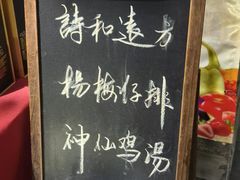 詩和远方
杨梅仔排
神仙鸡湯